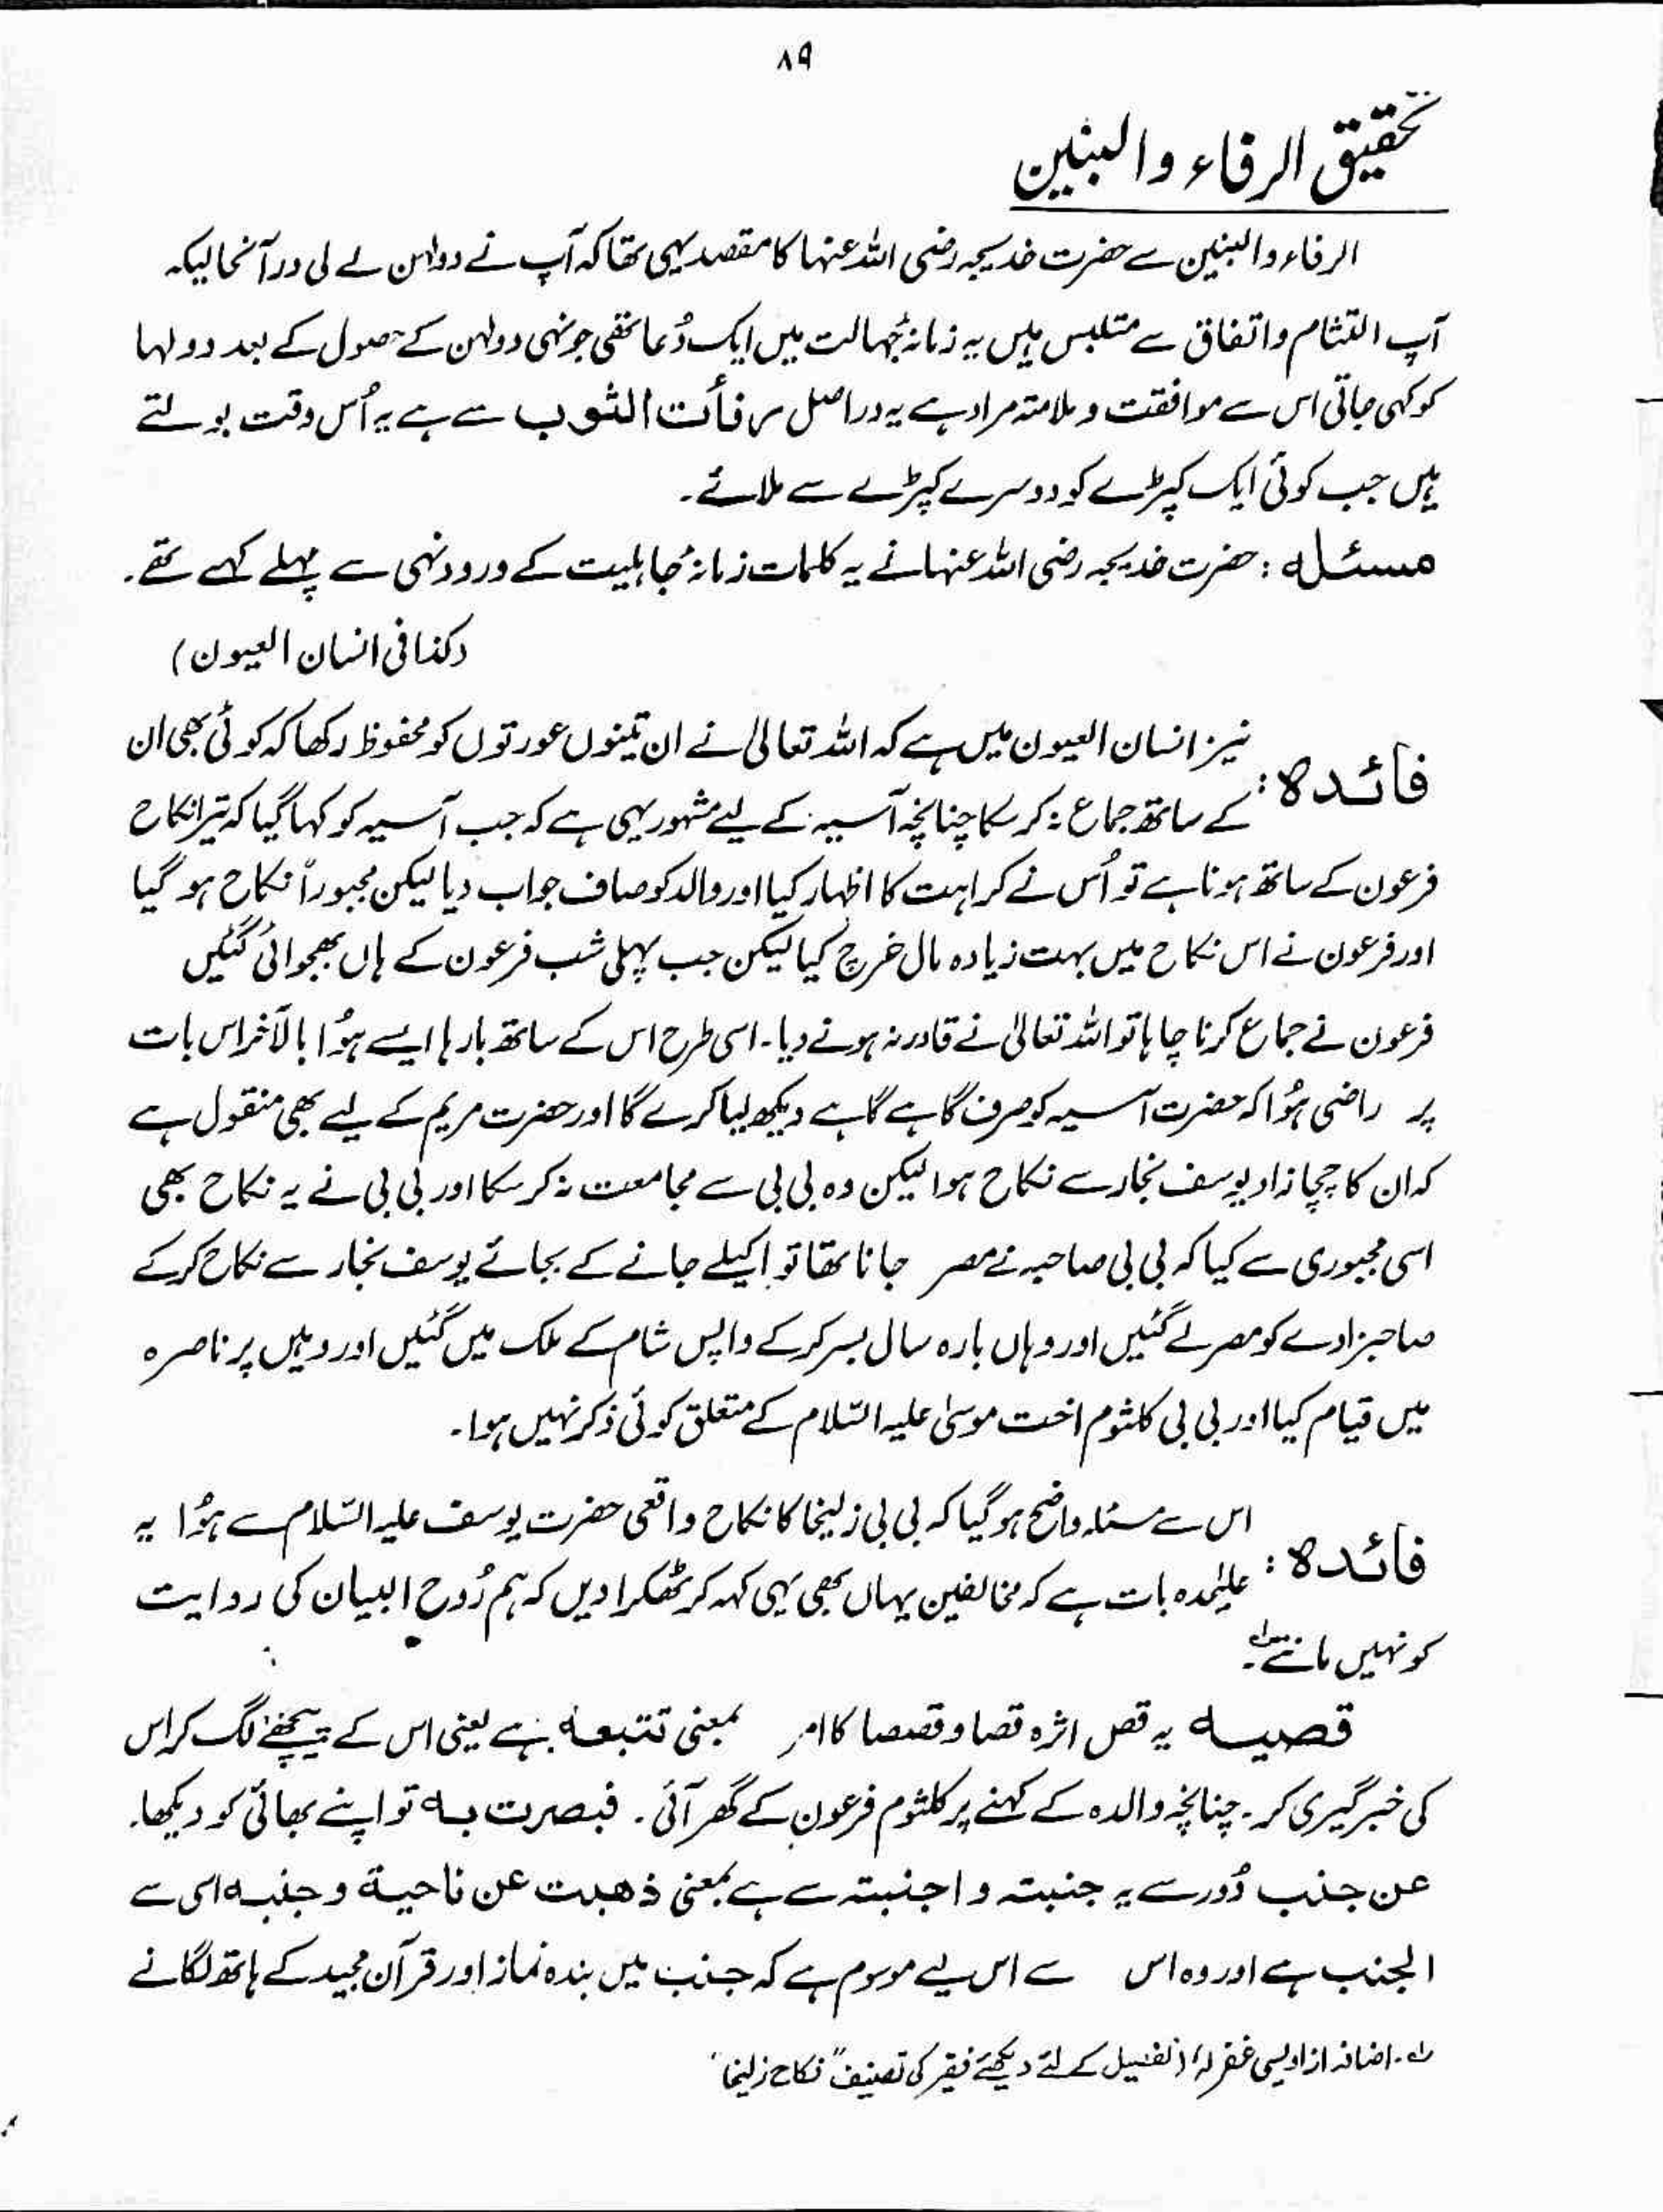 ۸۹
تحقیق الرفاء والبنین
الرفاء والبنین سے حضرت خدیجہ رضی اللہ عنہا کا مقصد یہی تھا کہ آپ نے دولہن لے لی در آنحالیکہ
آپ التئام و اتفاق سے متلبس ہیں یہ زمانۂ جہالت میں ایک دُعا تھی جونہی دولہن کے حصول کے بعد دولہا
کو کہی جاتی اس سے موافقت و ملامتہ مراد ہے یہ دراصل رفأت الثوب سے ہے یہ اُس وقت بولتے
ہیں جب کوئی ایک کپڑے کو دوسرے کپڑے سے ملائے۔
مسئلہ : حضرت خدیجہ رضی اللہ عنہا نے یہ کلمات زمانۂ جاہلیت کے ورود نہی سے پہلے کہے تھے۔
(کذا فی انسان العیون)
نیز انسان العیون میں ہے کہ اللہ تعالیٰ نے ان تینوں عورتوں کو محفوظ رکھا کہ کوئی بھی ان
فائدہ :
کے ساتھ جماع نہ کر سکا چنانچہ آسیہ کے لیے مشہور یہی ہے کہ جب آسیہ کو کہا گیا کہ تیرا نکاح
فرعون کے ساتھ ہونا ہے تو اُس نے کراہت کا اظہار کیا اور والد کو صاف جواب دیا لیکن مجبوراً نکاح ہو گیا
اور فرعون نے اس نکاح میں بہت زیادہ مال خرچ کیا لیکن جب پہلی شب فرعون کے ہاں بھجوائی گئیں
فرعون نے جماع کرنا چاہا تو اللہ تعالیٰ نے قادر نہ ہونے دیا۔ اسی طرح اس کے ساتھ بارہا ایسے ہُوا بالآخر اس بات
پر راضی ہُوا کہ حضرت آسیہ کو صرف گاہے گاہے دیکھ لیا کرے گا اور حضرت مریم کے لیے بھی منقول ہے
کہ ان کا چچا زاد یوسف نجار سے نکاح ہوا لیکن وہ بی بی سے مجامعت نہ کر سکا اور بی بی نے یہ نکاح بھی
اسی مجبوری سے کیا کہ بی بی صاحبہ نے مصر جانا تھا تو اکیلے جانے کے بجائے یوسف نجار سے نکاح کر کے
صاحبزادے کو مصر لے گئیں اور وہاں بارہ سال بسر کر کے واپس شام کے ملک میں گئیں اور وہیں پر ناصرہ
میں قیام کیا اور بی بی کلثوم اخت موسیٰ علیہ السّلام کے متعلق کوئی ذکر نہیں ہوا۔
اس سے مسئلہ واضح ہو گیا کہ بی بی زلیخا کا نکاح واقعی حضرت یوسف علیہ السّلام سے ہُوا یہ
فائدہ :
علیٰحدہ بات ہے کہ مخالفین یہاں بھی یہی کہہ کر ٹھکرا دیں کہ ہم رُوح البیان کی روایت
کو نہیں مانتے۔ ؎۱
قصیہ یہ قص اثرہ قصا و قصصا کا امر بمعنی تتبعہ ہے یعنی اس کے پیچھے لگ کر اس
کی خبر گیری کر۔ چنانچہ والدہ کے کہنے پر کلثوم فرعون کے گھر آئی۔ فبصرت بہ تو اپنے بھائی کو دیکھا۔
عن جنب دُور سے یہ جنبتہ و اجنبتہ سے ہے بمعنی ذھبت عن ناحیة و جنبہ اسی سے
الجنب ہے اور وہ اس سے اس لیے موسوم ہے کہ جنب میں بندہ نماز اور قرآن مجید کے ہاتھ لگانے
؎۱۔ اضافہ از اویسی غفرلہٗ (تفصیل کے لئے دیکھئے فقیر کی تصنیف "نکاح زلیخا"